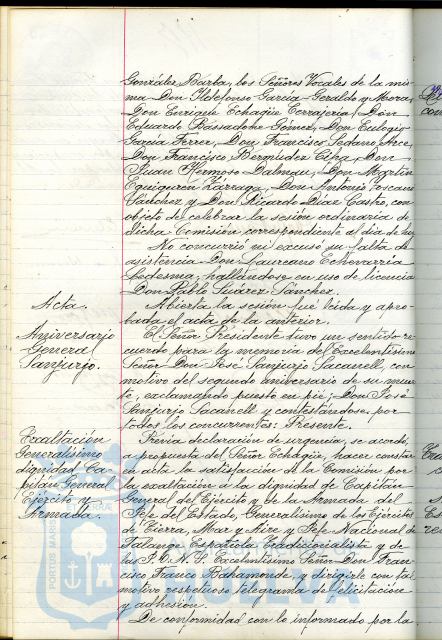 González Barba, los Señores Vocales de la mis-
ma Don Ildefonso García-Geraldo y Mora,
Don Enrique Echagüe Cerrajería, Don
Eduardo Bassadone Gómez, Don Eulogio
García Ferrer, Don Francisco Sedano Arce,
Don Francisco Bermúdez Don
Juan Hermoso Dalmau, Don Martín
Eguiguren Zárraga, Don Antonio Toscano
Sánchez y Don Ricardo Díaz Castro, con
objeto de celebrar la sesión ordinaria de
dicha Comisión correspondiente al día de hoy.
No concurrió ni excusó su falta de
asistencia Don Laureano Echevarría
Ledesma, hallándose en uso de licencia
Don Pablo Suárez Sánchez.
Acta.
Abierta la sesión fué leída y apro-
bada el acta de la anterior.
Aniversario
General
Sanjurjo.
El Señor Presidente tuvo un sentido re-
cuerdo para la memoria del Excelentísimo
Señor Don José Sanjurjo Sacanell, con
motivo del segundo aniversario de su muer-
te, exclamando puesto en pié: Don José
Sanjurjo Sacanell y contestándose por
todos los concurrentes: Presente.
Exaltación
Generalísimo
dignidad Ca-
pitán General
Ejército y
Armada.
Previa declaración de urgencia, se acordó,
a propuesta del Señor Echagüe, hacer constar
en acta la satisfacción de la Comisión por
la exaltación a la dignidad de Capitán
General del Ejército y de la Armada del
Jefe del Estado, Generalísimo de los Ejércitos
de Tierra, Mar y Aire y Jefe Nacional de
Falange Española Tradicionalista y de
las J.O.N.S. Excelentísimo Señor Don Fran-
cisco Franco Bahamonde, y dirigirle con tal
motivo respetuoso telegrama de felicitación
y adhesión.
De conformidad con lo informado por la